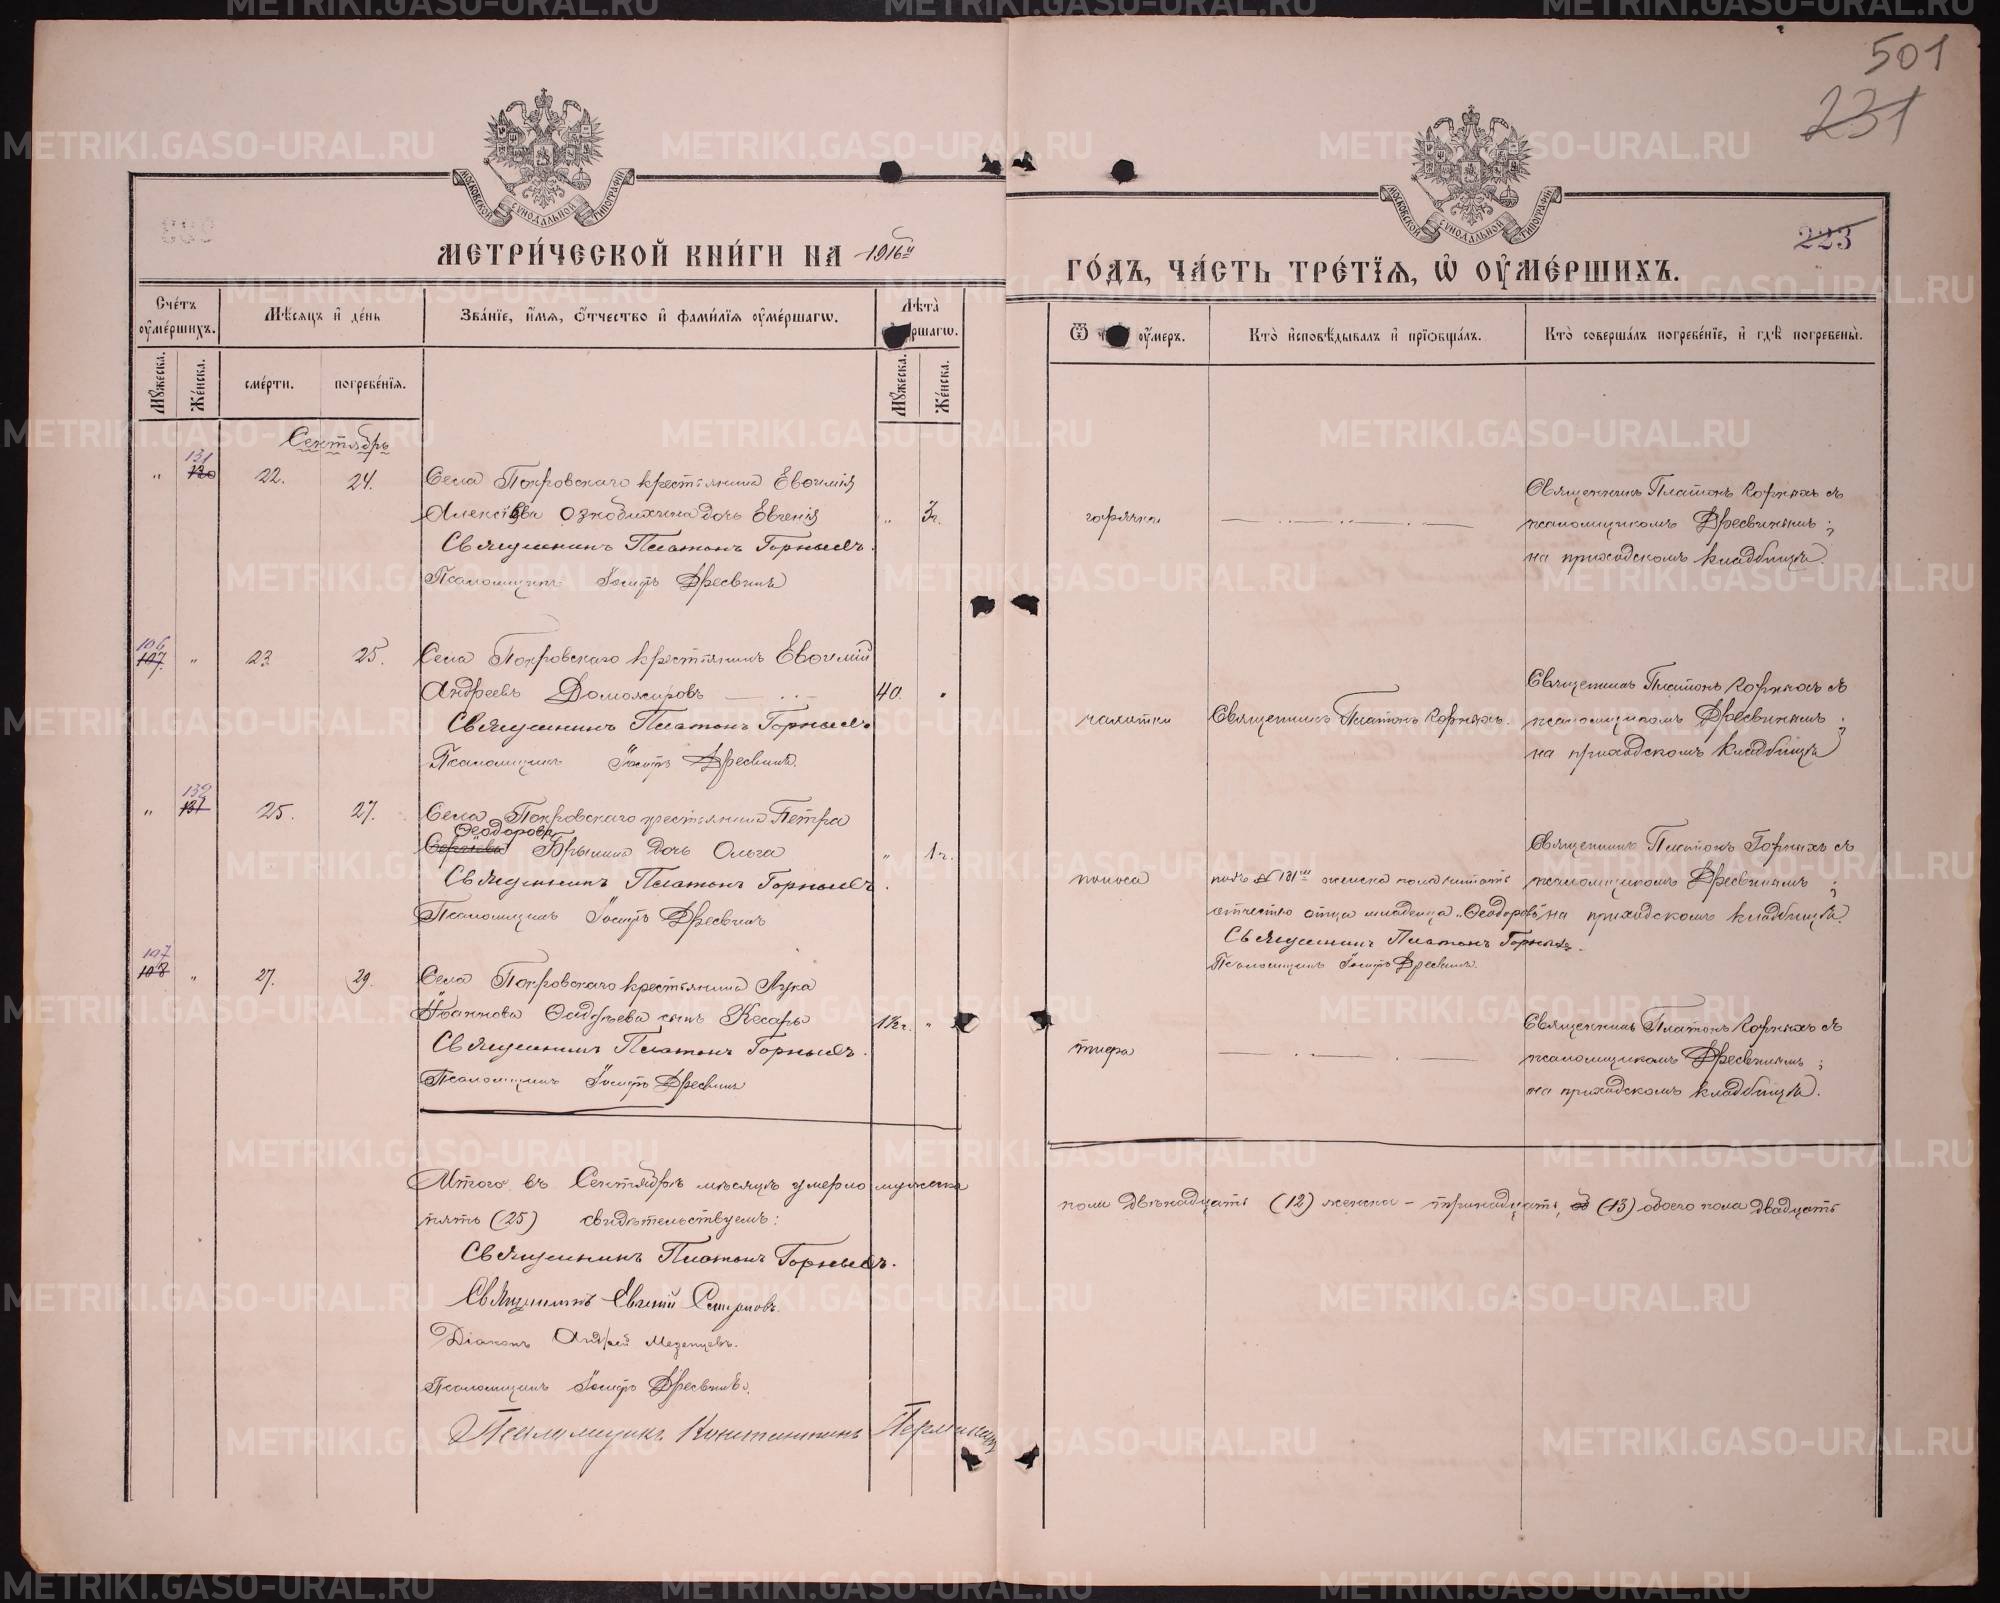 501
231
223
МОСКОВСКОЙ СѴНОДАЛЬНОЙ ТИПОГРАФІИ
МОСКОВСКОЙ СѴНОДАЛЬНОЙ ТИПОГРАФІИ
МЕТРИ́ЧЕСКОЙ КНИ́ГИ НА 1916й
ГО́ДЪ, ЧА́СТЬ ТРЕ́ТІѦ, Ѡ҆ ОУ҆МЕ́РШИХЪ.
Сче́тъ оу҆ме́ршихъ.
Мѣ́сяцъ и҆ де́нь
Зва́нїе, и҆́мѧ, ѻ҆́тчество и҆ фами́лїѧ оу҆ме́ршагѡ.
Лѣ́та
ршагѡ.
Мꙋ́жеска.
Же́нска.
сме́рти.
погребе́нїѧ.
Мꙋ́жеска.
Же́нска.
Ѿ оу҆́меръ.
Кто̀ и҆сповѣ́дывалъ и҆ прїѡбща́лъ.
Кто̀ соверша́лъ погребе́нїе, и҆ гдѣ̀ погребены̀.
Сентябрь
131
" 130 22. 24. Села Покровскаго крестьянина Евѳимія
Алексіева Ознобихина дочь Евгенія " 3г.
Священникъ Платонъ Горныхъ.
Псаломщикъ Іосифъ Дресвинъ
горячки
Священникъ Платонъ Горныхъ съ
псаломщикомъ Дресвинымъ;
на приходскомъ кладбищѣ.
106
107. " 23. 25. Села Покровскаго крестьянинъ Евѳимій
Андреевъ Доможировъ 40. "
Священникъ Платонъ Горныхъ.
Псаломщикъ Іосифъ Дресвинъ.
чахотки
Священникъ Платонъ Горныхъ.
Священникъ Платонъ Горныхъ съ
псаломщикомъ Дресвинымъ;
на приходскомъ кладбищѣ
132
" 131 25. 27. Села Покровскаго крестьянина Петра
Ѳеодорова
Сергіева Брылина дочь Ольга " 1г.
Священникъ Платонъ Горныхъ.
Псаломщикъ Іосифъ Дресвинъ
поноса
подъ № 131мъ женска пола читать
отчество отца младенца „Ѳеодоровъ"
Священникъ Платонъ Горныхъ.
Псаломщикъ Іосифъ Дресвинъ.
Священникъ Платонъ Горныхъ съ
псаломщикомъ Дресвинымъ;
на приходскомъ кладбищѣ.
107
108 " 27. 29. Села Покровскаго крестьянина Лука
Іоаннова сынъ Кесарь 1½г. "
Священникъ Платонъ Горныхъ.
Псаломщикъ Іосифъ Дресвинъ
тифа
Священникъ Платонъ Горныхъ съ
псаломщикомъ Дресвинымъ;
на приходскомъ кладбищѣ.
Итого въ Сентябрѣ мѣсяцѣ умерло мужеска
пола двѣнадцать (12) женска – тринадцать, (13) обоего пола двадцать
пять (25) свидѣтельствуемъ:
Священникъ Платонъ Горныхъ.
Священникъ Евгеній Смирновъ.
Діаконъ Андрей Мезенцевъ.
Псаломщикъ Іосифъ Дресвинъ.
Псаломщикъ Константинъ
METRIKI.GASO-URAL.RU